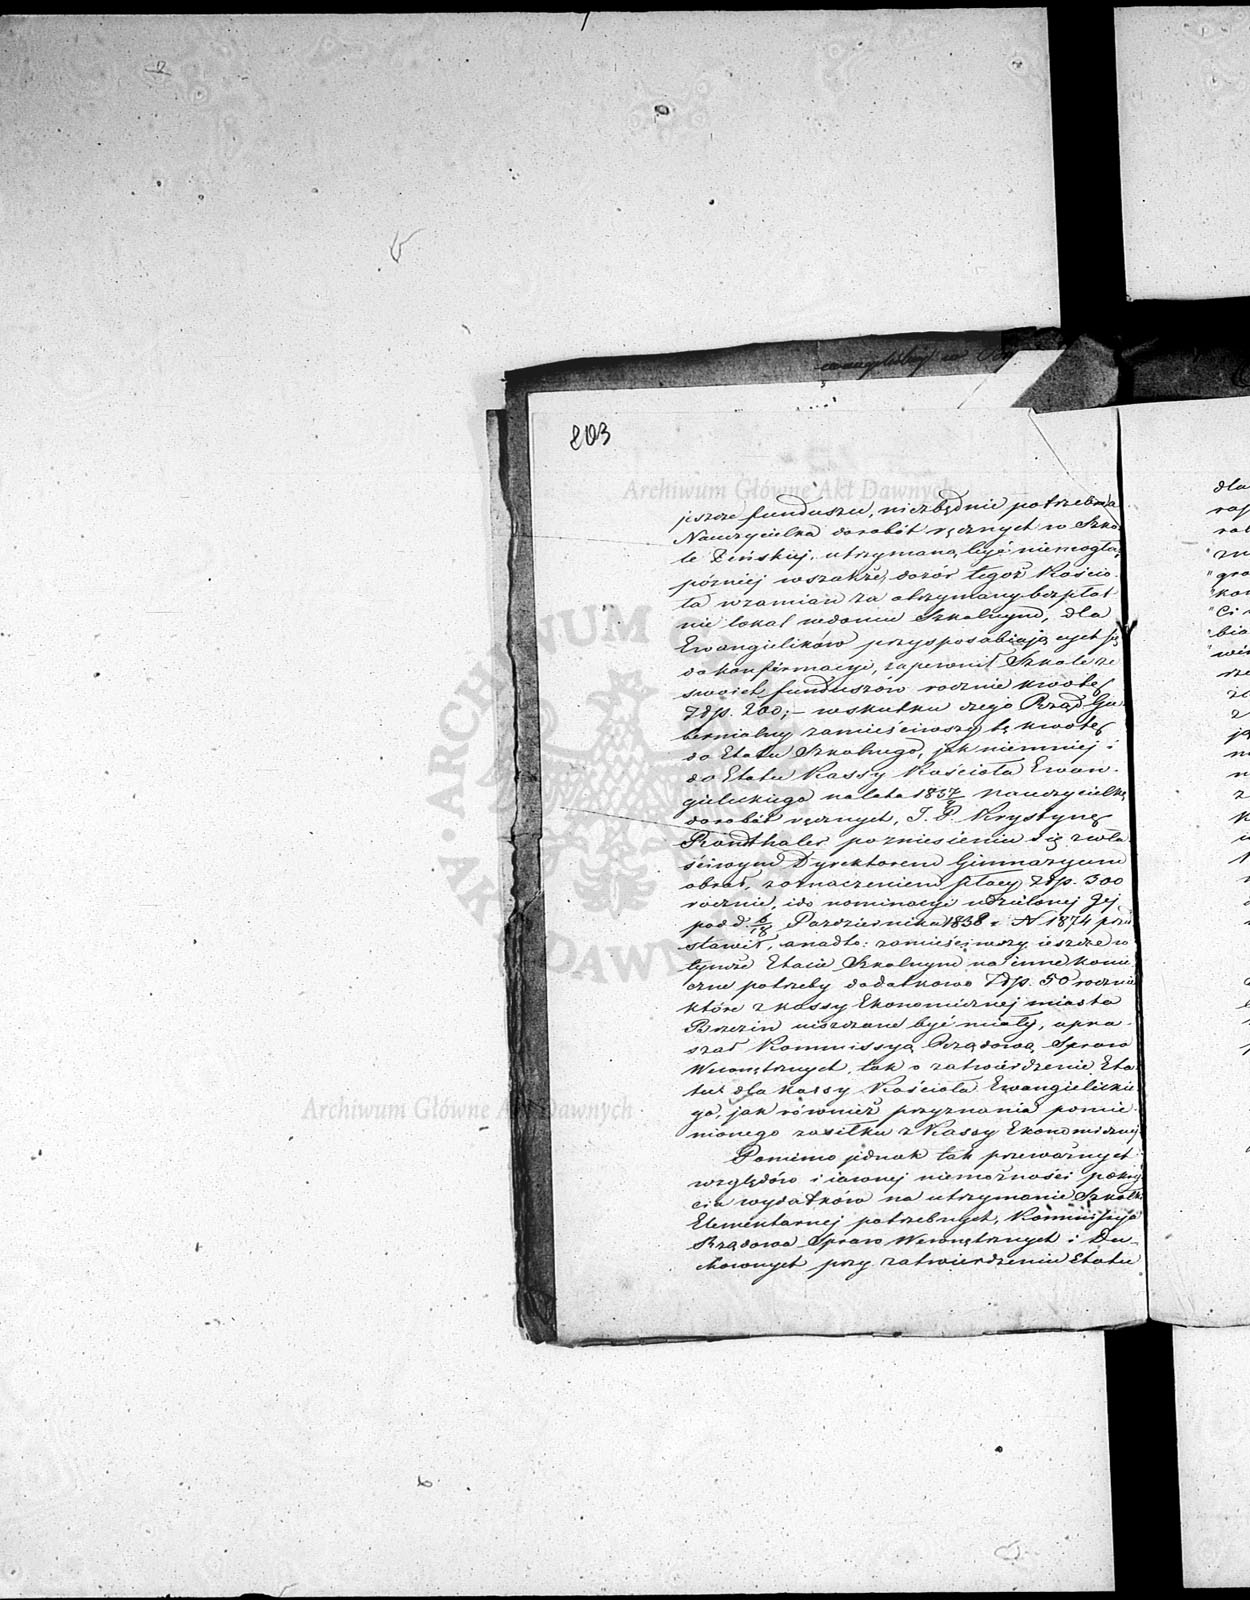 803
jeszcze funduszu, niezbędnie potrzebna
Nauczycielka do robót ręcznych w Szko
le Żeńskiej, utrzymaną być niemogła,
później wszakże, dozór tegoż Kościo
ła wzamian za otrzymany bezpłat
nie lokal wdomu Szkolnym, dla
Ewangielików przysposabiających się
do konfirmacyi, zapewnił Szkole ze
swoich funduszów rocznie kwotę
Złp. 200; – wskutku czego Rząd Gu
bernialny zamieściwszy tę kwotę
do Etatu Szkolnego, jak niemniej i
do Etatu Kassy Kościoła Ewan
gielickiego na lata 1837 Nauczycielkę
do robót ręcznych, J. P. Krystynę
Ronthaler po zniesieniu się z wła
ściwym Dyrektorem Gimnazyum
obrał, z oznaczeniem płacy Złp. 300
rocznie, i do nominacyi udzielonej Jej
pod d. 6/18 Października 1838 r. N 1874 przed
stawił, a nadto: zamieściwszy jeszcze w
tymże Etacie Szkolnym na inne konie
czne potrzeby dodatkowo Złp. 50 rocznie
które z kassy Ekonomicznej miasta
Brzezin uiszczane być miały, upra
szał Kommissyą Rządową Spraw
Wewnętrznych, tak o zatwierdzenie Eta
tu dla kassy Kościoła Ewangielickie
go, jak również przyznania pomie
nionego zasiłku z Kassy Ekonomicznej
Pomimo jednak tak przeważnych
względów i jawnej niemożności pokry
cia wydatków na utrzymanie Szkoły
Elementarnej potrzebnych, Kommissyja
Rządowa Spraw Wewnętrznych i Du-
chownych przy zatwierdzeniu Etatu
Archiwum Główne Akt Dawnych
Archiwum Główne Akt Dawnych